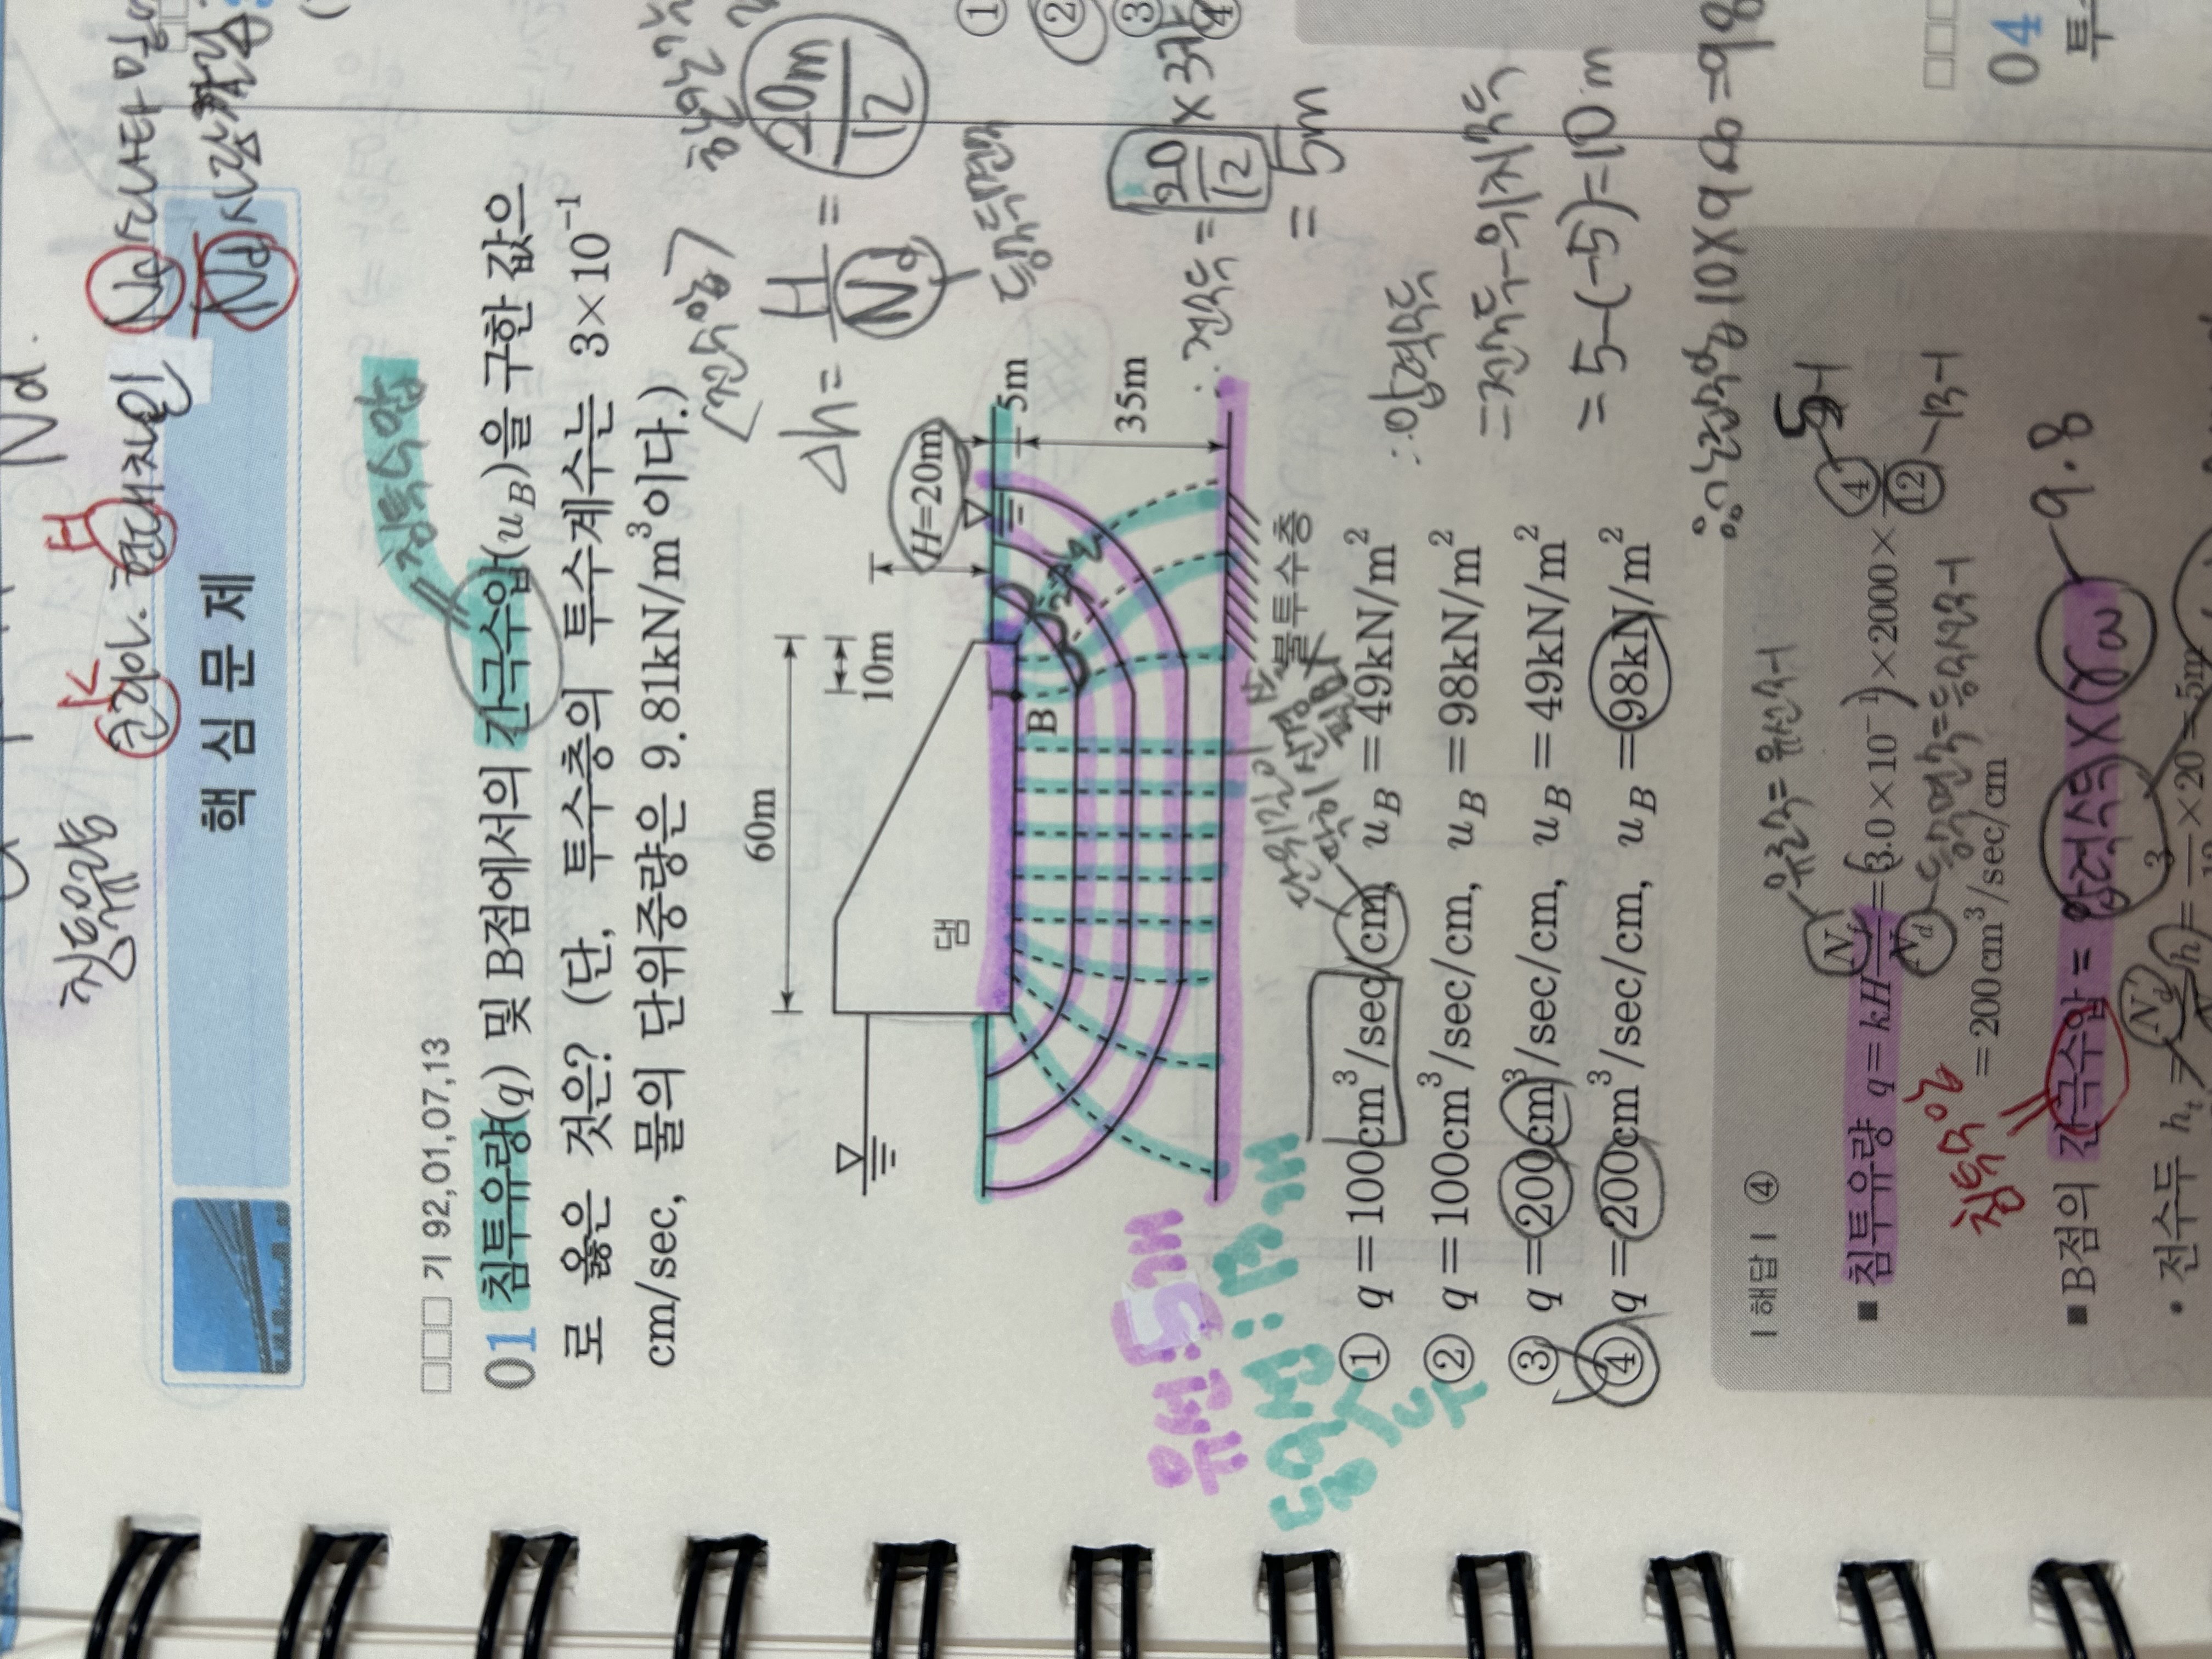 Nd.
침투유량
길이
Nf
Nd
핵 심 문 제
침투수압
기 92,01,07,13
01 침투유량(q) 및 B점에서의 간극수압(uB)을 구한 값으
로 옳은 것은? (단, 투수층의 투수계수는 3×10⁻¹
cm/sec, 물의 단위중량은 9.81kN/m³이다.)
<전수압>
Δh = H/Nd = 20m/12
등수두면
60m
10m
H=20m
댐
B
5m
35m
불투수층
∴ 전수두 = 20/12 × 3칸
= 5m
∴ 압력수두
= 전수두 - 위치수두
= 5-(-5)=10m
유선:5개
등수두선:13개
① q=100cm³/sec/cm, uB=49kN/m²
② q=100cm³/sec/cm, uB=98kN/m²
③ q=200cm³/sec/cm, uB=49kN/m²
④ q=200cm³/sec/cm, uB=98kN/m²
∴ 간극수압 10×9.8=98
| 해답 | ④
유로수=유선수-1
5-1
■ 침투유량 q=kH Nf/Nd=(3.0×10⁻¹)×2000×4/12
13-1
등수면수=등수선수-1
=200cm³/sec/cm
침투수압
9.8
■ B점의 간극수압= 압력수두×γω
• 전수두 ht=
×20=5m
①
②
③
④
04
투